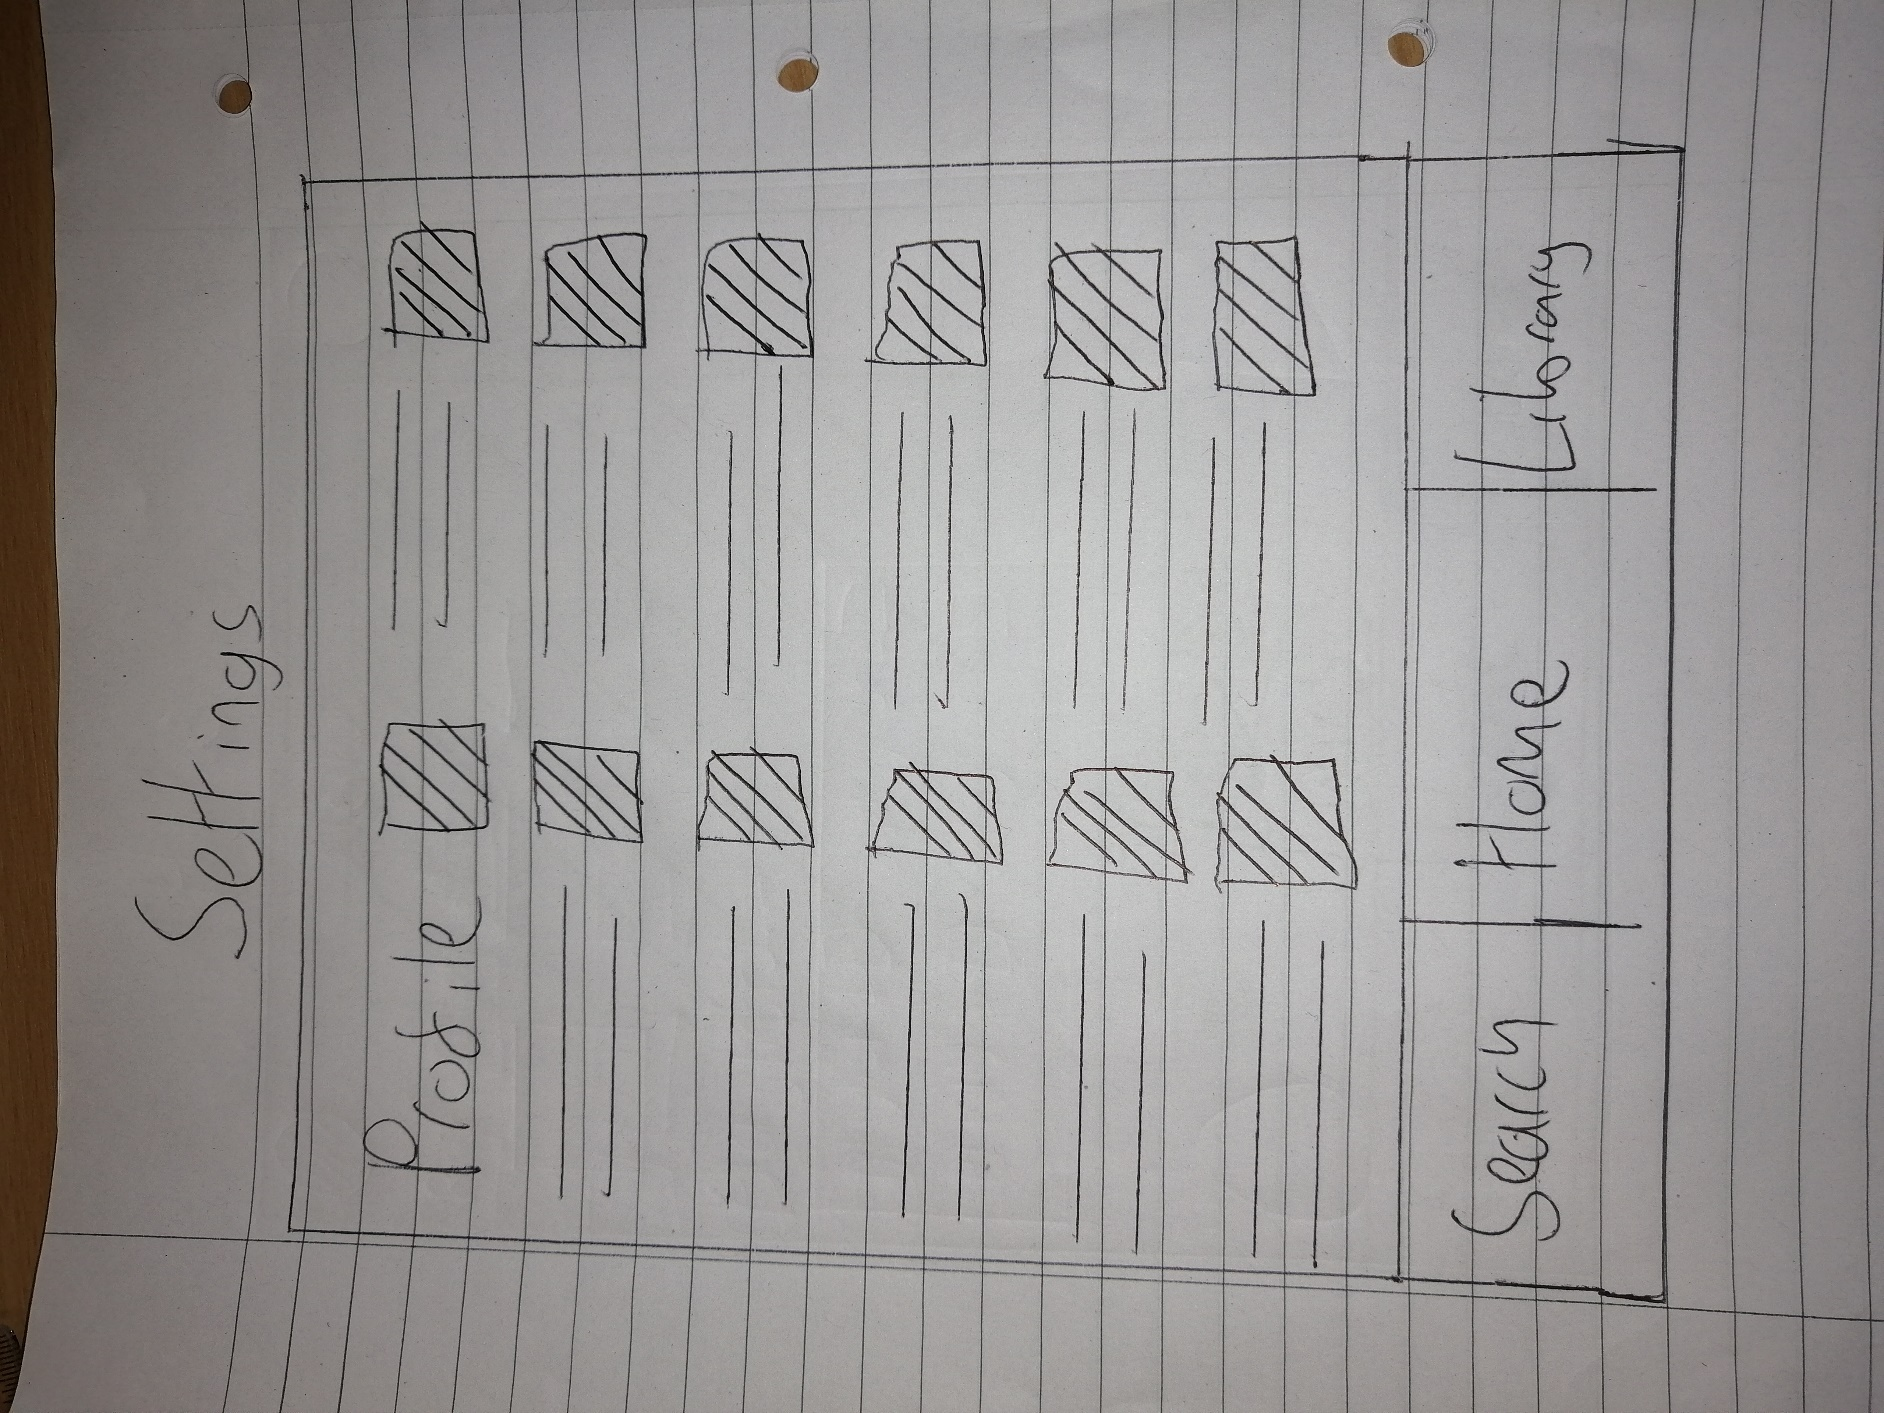 Settings
Profile
Search Home Library